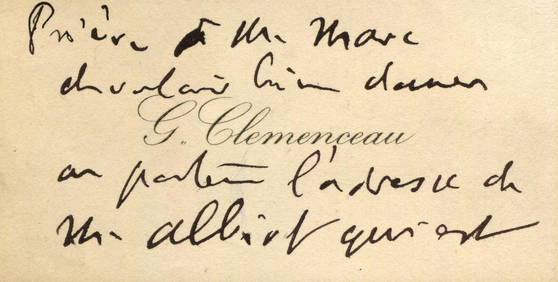 Prière à M. Marc
de vouloir bien donner
G. Clemenceau
au porteur l'adresse de
M. Albiot qui est